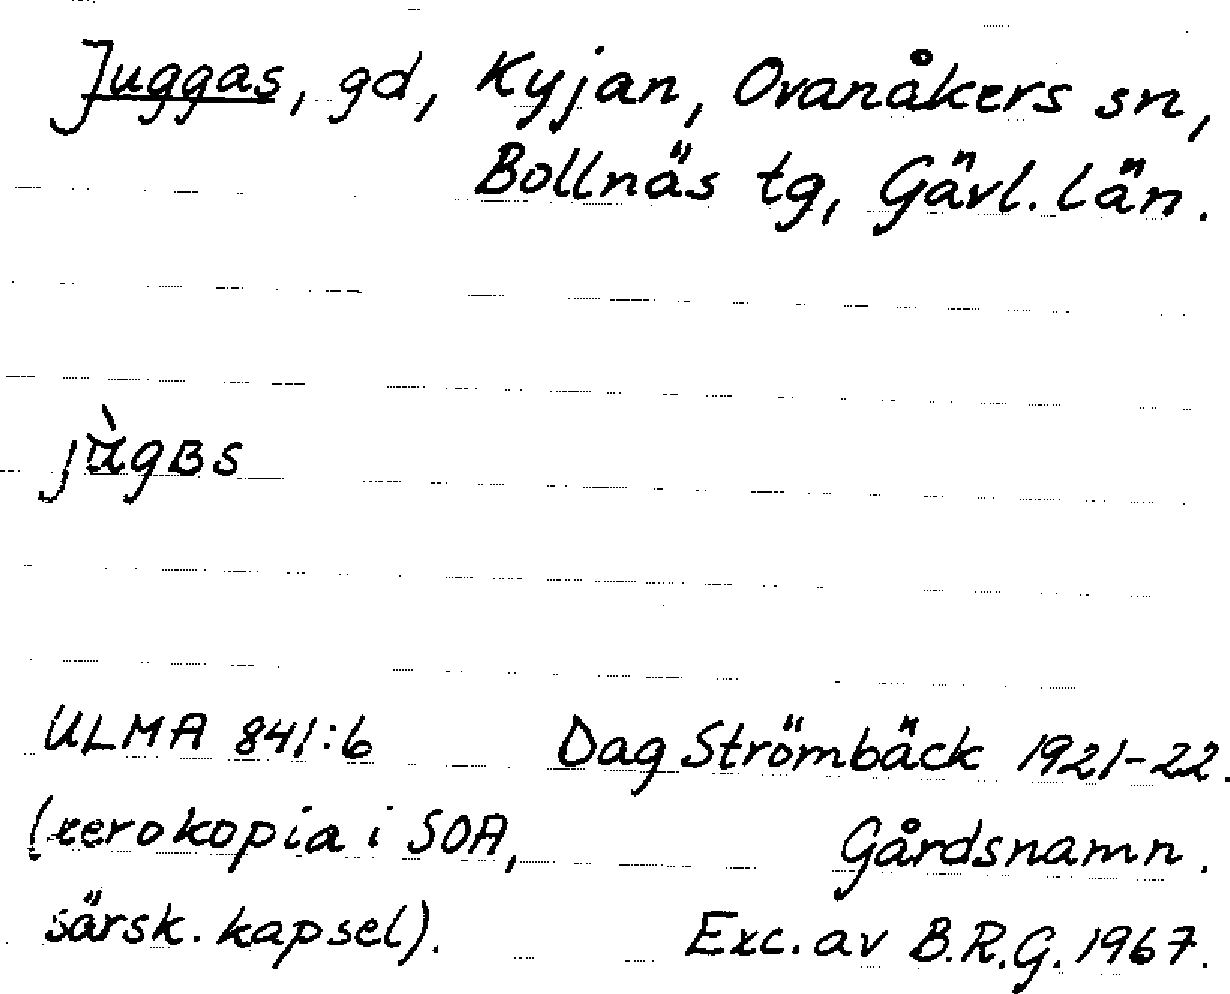 Juggas, gd, Kyjan, Ovanåkers sn,
Bollnäs tg, Gävl. län.
ULMA 841:6 Dag Strömbäck 1921-22.
(xerokopia i SOA, Gårdsnamn.
särsk. kapsel). Exc. av B.R.G. 1967.